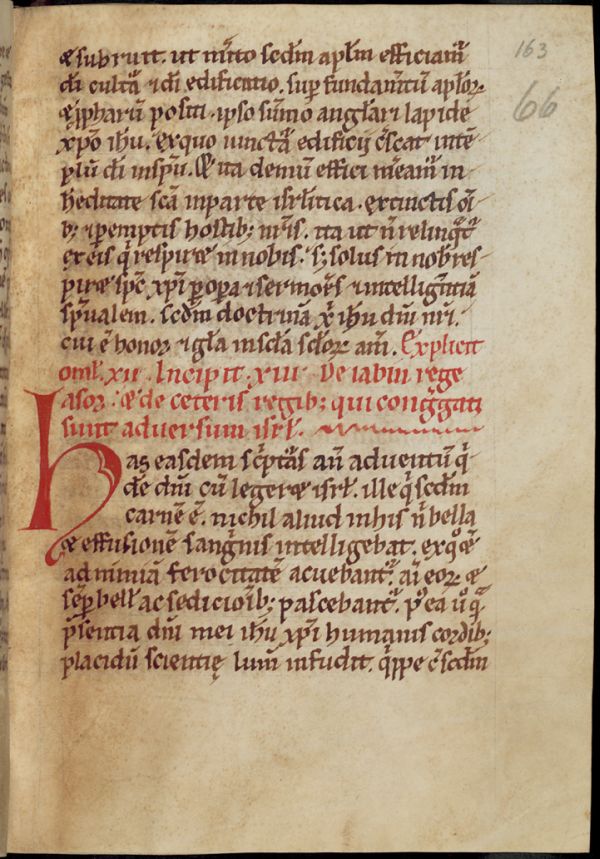 163
66
⁊ subruit. ut m̅ito scd̅m apl̅m efficiam̅
di̅ cultā ⁊ di̅ edificatio. suꝑ fundam̅tū apl̅oꝝ.
⁊ ꝓphaꝝ positi. ipso sūmo angl̅ari lapide
xp̅o ih̅u. Ex quo iunctā edificij c̅scat in tē-
plū di̅ in sp̅u. Et ita demū effici meam̅ in
h̅editate sc̅a in parte isrl̅itica. extinctis oi̅
b; ⁊ ꝑemptis hostib; nr̅is. ita ut n̅ relinq̅t̅
ex eis q̅ respiret in nobis. s; solus in nob̅ res-
piret sp̅c xp̅i ꝑ oꝑa ⁊ sermōs ⁊ intellign̅tiā
sp̅ualem. scd̅m doctrinā x̅i ih̅u dn̅i nr̅i.
cui ē honor ⁊ gl̅a in scl̅a scl̅oꝝ am̅. Explicit
oml̅. xii. Incipit. xiii. De iabin rege
asor. et de ceteris regib; qui cong̅gati
sunt adversum isrl̅.
Has easdem sc̅pt̅as an̅ adventū q̅-
dē dn̅i cū legeret isrl̅. ille q̅ scd̅m
carnē ē. nichil aliud in his n̅ bella
et effusionē sang̅nis intelligebat. ex qͦ et̅
ad nimiā ferocitatē acuebant̅. ai̅ eoꝝ et
sēꝑ bell̅ ac sedicioi̅b; pascebant̅. P̅ea u̅o q̅
p̅sentia dn̅i mei ih̅u xp̅i humanis cordib;
placidū scientię lum̅ infudit. q̅ppe c̅ scd̅m